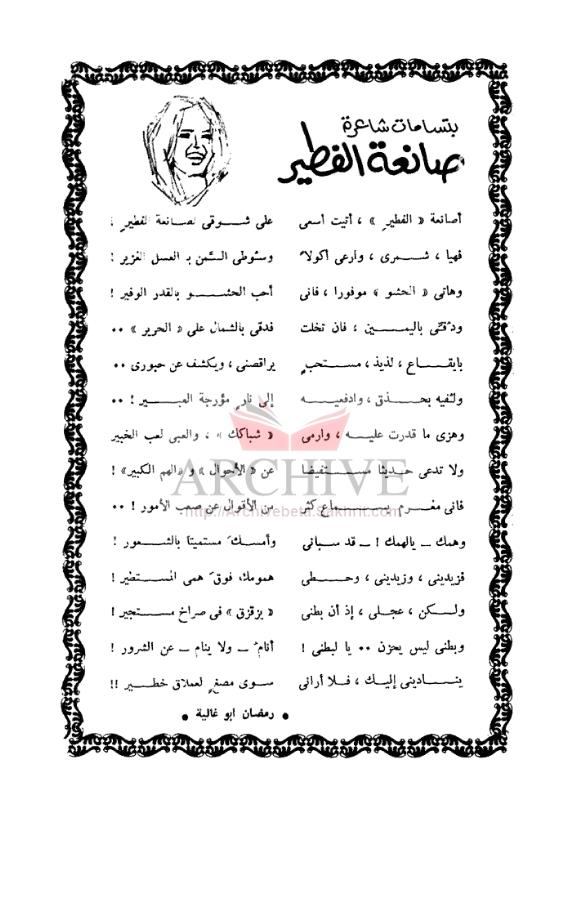 بتسامات شاعرة
صانعة الفطير
أصانعة « الفطير » ، أتيت أسعى على شوقى لصانعة الفطير ،
فهيا ، شمرى ، وارعى إكولا وسوطى السمن بـ العسل الغزير !
وهاتى « الحشو » موفورا ، فانى أحب الحشو بالقدر الوفير !
ودقى باليمين ، فان تخلت فدقى بالشمال على « الحرير » ..
بايقاع ، لذيذ ، مستحب يراقصنى ، ويكشف عن حبورى ..
ولفيه بحذق ، وادفعيه إلى نار مؤرجة العبير ! ..
وهزى ما قدرت عليه ، وارمى « شباكك » ، والعبى لعب الخبير
ولا تدعى حديثا مستفيضا عن « الأحوال » و « الهم الكبير » !
فانى مغرم بسماع كثر من الأقوال عن صعب الأمور ! ..
وهمك ــ يالهمك ! ــ قد سبانى وأمسك مستميتا بالشعور !
فزيدينى ، وزيدينى ، وحطى همومك فوق همى المستطير !
ولكن ، عجلى ، إذ أن بطنى « يزقزق » فى صراخ مستجير !
وبطنى ليس يحزن .. يا لبطنى ! أنام ــ ولا ينام ــ عن الشرور !
ينادينى إليك ، فلا أرانى سوى مصغ لعملاق خطير !!
• رمضان ابو غالية •
ARCHIVE